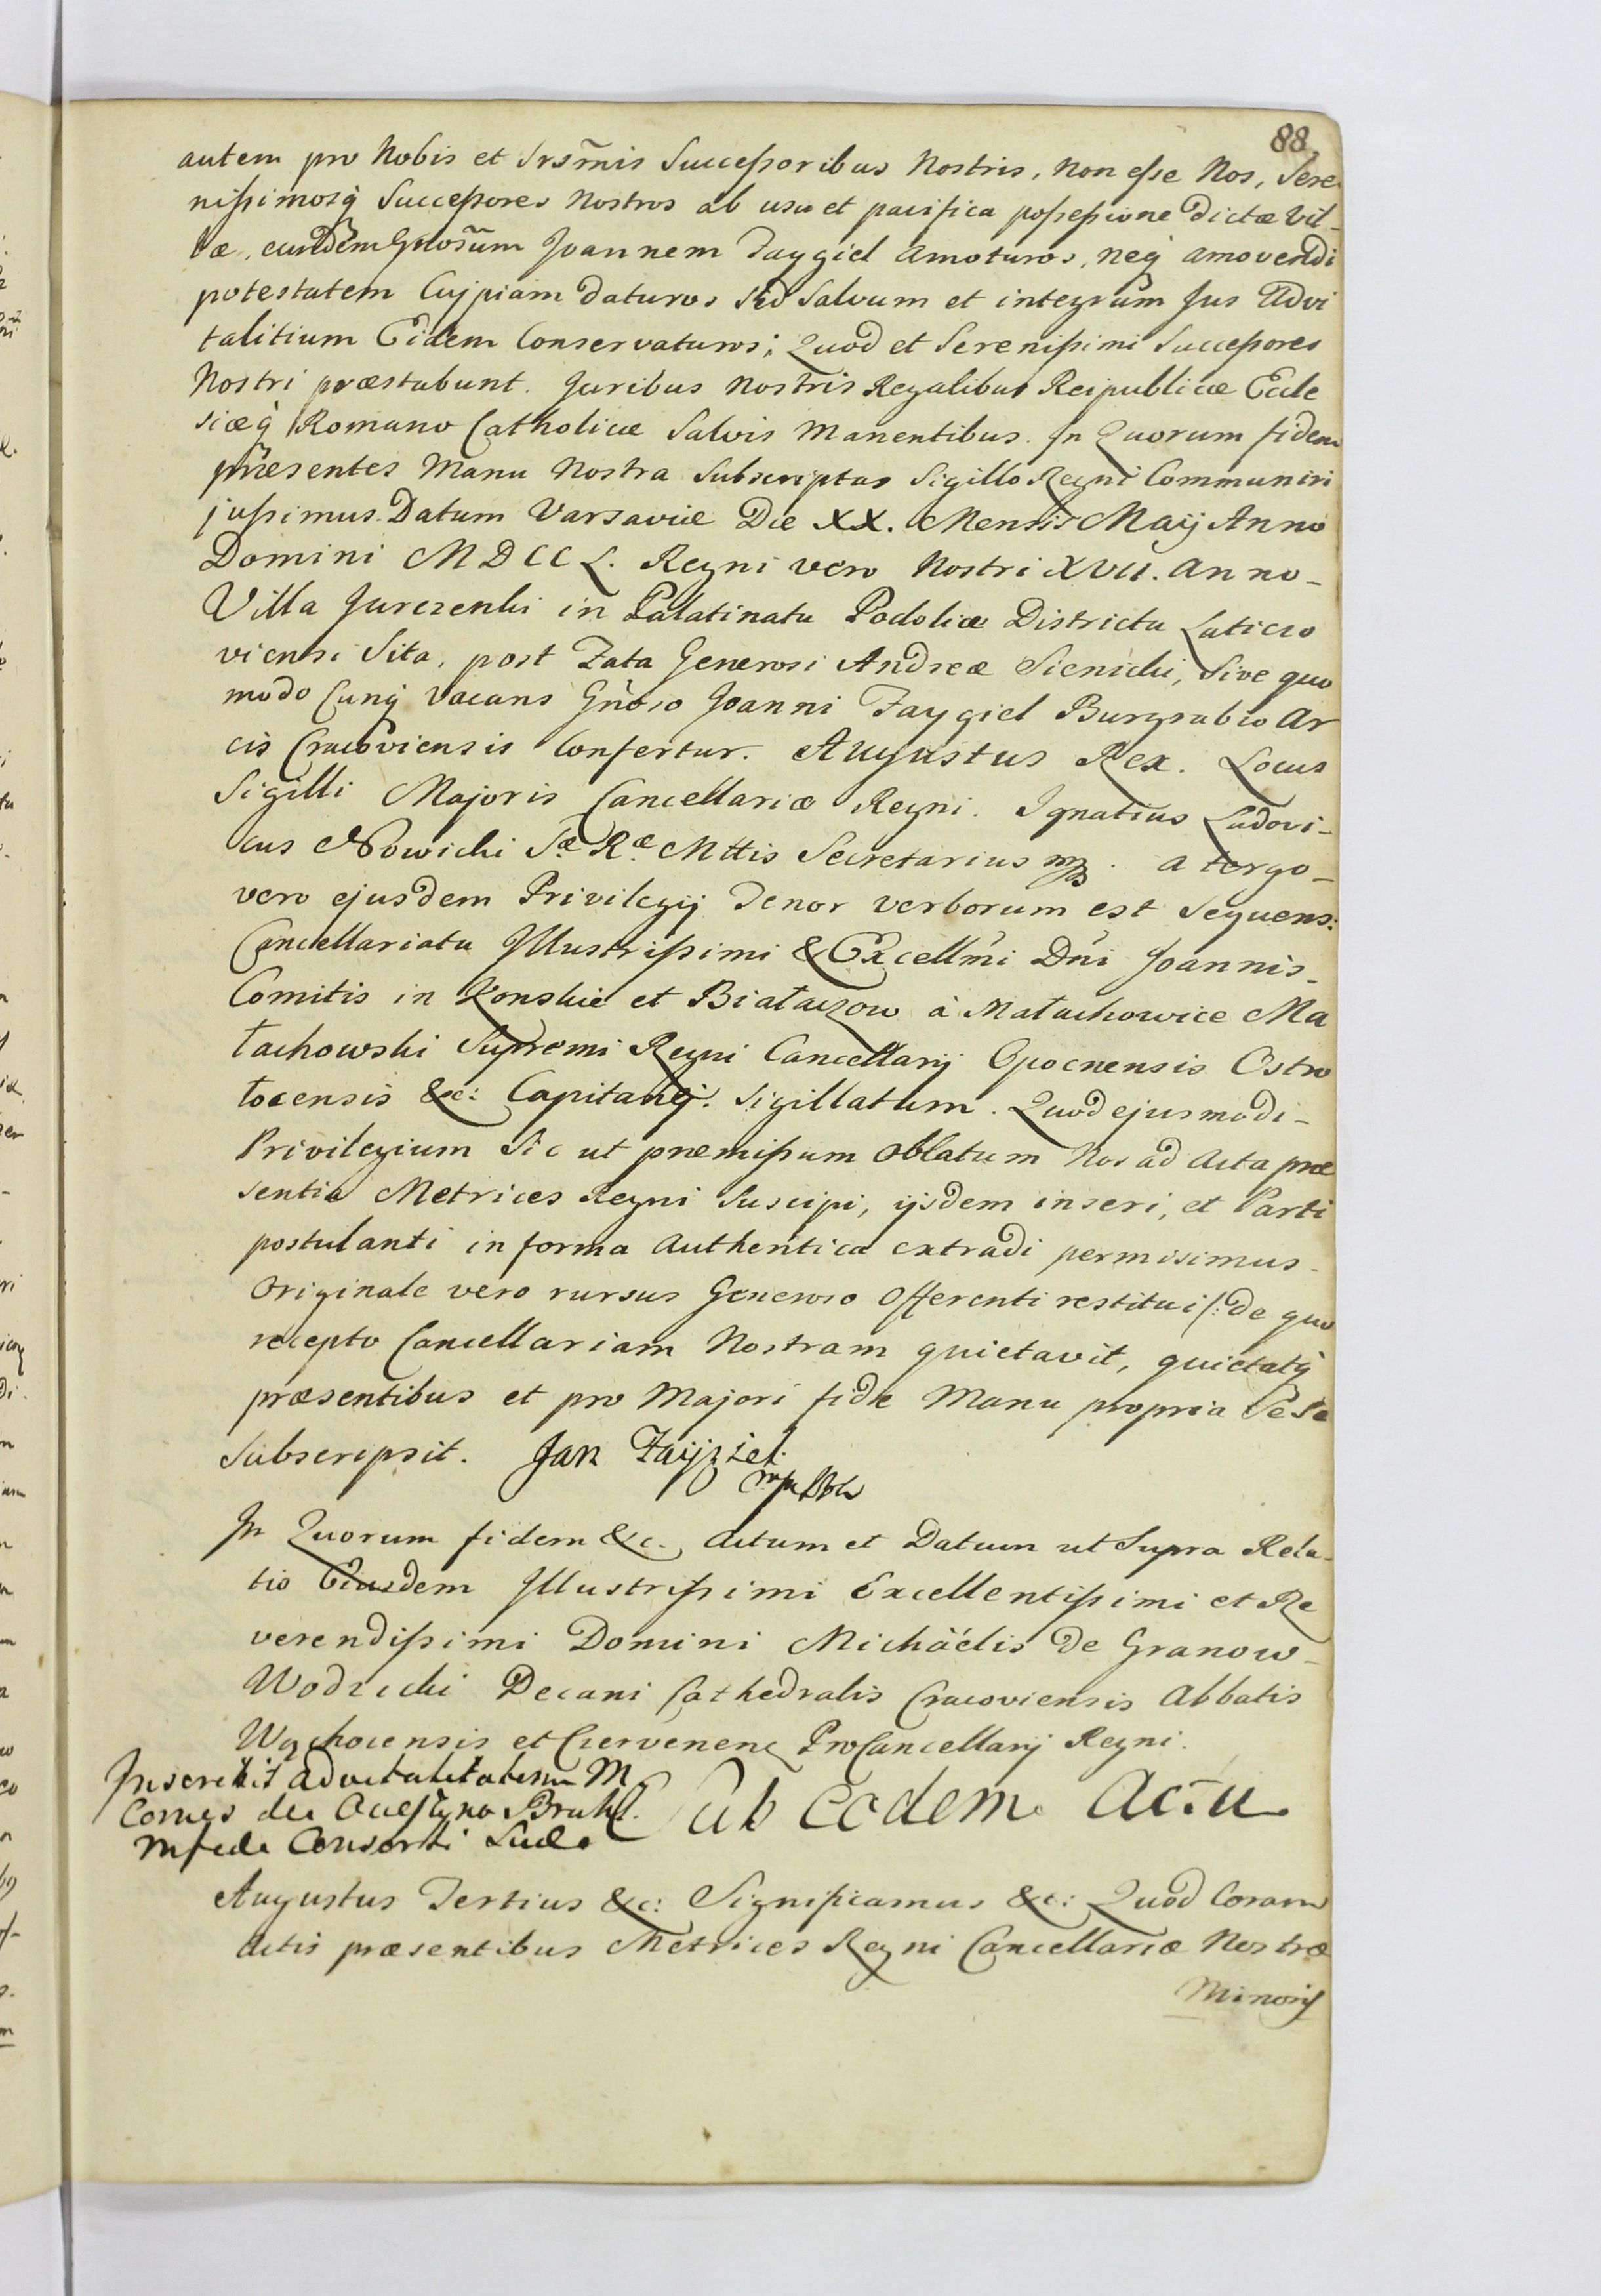 88.
autem pro Nobis et Srsm̃is Succeſsoribus Nostris, Non eſse Nos, Sere
niſsimosq̃ Succeſsores Nostros ab usu et pacifica poſseſsione Dictæ Vil-
læ, eundem Gnosũm Joannem Faygiel Amoturos, neq̃ amovendi
potestatem Cujpiam Daturos sed Salvum et integrum Jus Advi
talitium Eidem Conservaturos; Quod et Sereniſsimi Succeſsores
Nostri præstabunt. Juribus Nostris Regalibus Reipublicæ Eccle
siæq̃ Romano Catholicæ Salvis Manentibus. In Quorum fidem
præsentes Manu Nostra Subscriptas Sigillo Regni Communiri
juſsimus. Datum Varsaviæ Die XX. Mensis Maij Anno
Domini MDCCL. Regni vero Nostri XVII. Anno-
Villa Jurczenki in Palatinatu Podoliæ Districtu Laticzo
viensi Sita, post Fata Generosi Andreæ Sienicki, Sive quo
modo Cunq̃ Vacans Gñoso Joanni Faygiel Burgrabio Ar
cis Cracoviensis Confertur. Augustus Rex. Locus
Sigilli Majoris Cancellariæ Regni. Ignatius Ludovi-
cus Nowicki Sæ Ræ Mttis Secretarius mp. a tergo-
vero ejusdem Privilegij Tenor verborum est Sequens:
Cancellariatu Illustriſsimi & Excellm̃i Dñi Joannis-
Comitis in Konskie et Białaczow à Małachowice Ma
łachowski Supremi Regni Cancellarij Opocnensis Ostro
łocensis &c: Capitanej. Sigillatum. Quod ejusmodi-
Privilegium Sic ut præmiſsum Oblatum Nos ad Acta præ
sentia Metrices Regni Suscipi, ijsdem inseri, et Parti
postulanti in forma Authentica extradi permisimus-
Originale vero rursus Generoso Offerenti restitui /: De quo
recepto Cancellariam Nostram quietavit, quietatq̃
præsentibus et pro Majori fide Manu propria Se Se
Subscripsit. Jan Faijgiel
mp
In Quorum fidem &c. Actum et Datum ut Supra Rela-
tio Eiusdem Illustriſsimi Excellentiſsimi et Re
verendiſsimi Domini Michäelis De Granow-
Wodzicki Decani Cathedralis Cracoviensis Abbatis
Wąchocensis et Czervenen ProCancellarij Regni.
Inscribit advitalitatem M.
Comes de Bruhl.
Consorti Suæ
Sub eodem Actu
Augustus Tertius &c: Significamus &c: Quod Coram
Actis præsentibus Metrices Regni Cancellariæ Nostræ
Minoris